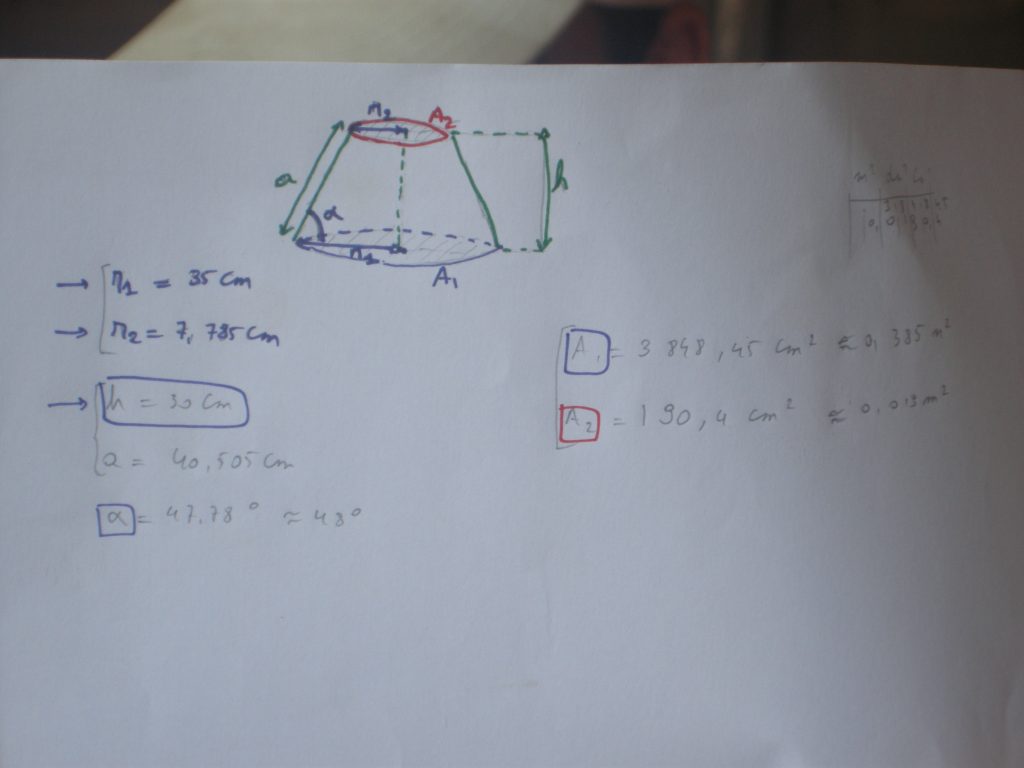 r2 A2
a
h
α
r1
A1
→ r1 = 35 cm
→ r2 = 7,785 cm
→ h = 30 cm
a = 40,505 cm
α = 47,78° ≈ 48°
m²
A1 = 3 848,45 cm² ≈ 0,385 m²
A2 = 190,4 cm² ≈ 0,019 m²